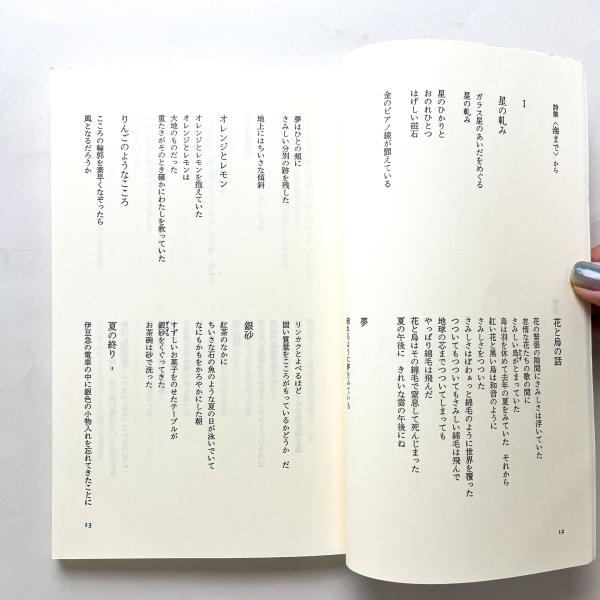 詩集〈海まで〉から
I
星の軋み
ガラス星のあいだをめぐる
星の軋み
星のひかりと
おのれひとつ
はげしい磁石
金のピアノ線が顫えている
花と鳥の話
花の緊張の隙間にさみしさは浮いていた
怠惰な花たちの歌の間に
さみしい鳥がとまっていた
鳥は羽を休めて去年の夏をみていた それから
紅い花と黒い鳥は和音のように
さみしさをつついた
さみしさはぱわぁっと綿毛のように世界を覆った
つついてもつついてもさみしい綿毛は飛んで
地球の芯までつついてしまっても
やっぱり綿毛は飛んだ
花と鳥はその綿毛で窒息して死んじまった
夏の午後に きれいな雲の午後にね
夢
12
夢はひとの頬に
さみしい分別の跡を残した
地上にはちいさな傾斜
オレンジとレモン
オレンジとレモンを抱えていた
オレンジとレモンは
大地のものだった
重たさがそのとき確かにわたしを救っていた
りんごのようなこころ
こころの輪郭を素早くなぞったら
風となるだろうか
リンカクとよべるほど
固い質量をこころがもっているかどうか だ
銀砂
紅茶のなかに
ちいさな石の魚のような夏の日が泳いでいて
なにもかもをかろやかにした朝
すずしいお菓子をのせたテーブルが
銀砂をくぐってきた
お茶碗は砂で洗った
夏の終り 2
伊豆急の電車の中に銀色の小物入れを忘れてきたことに
13